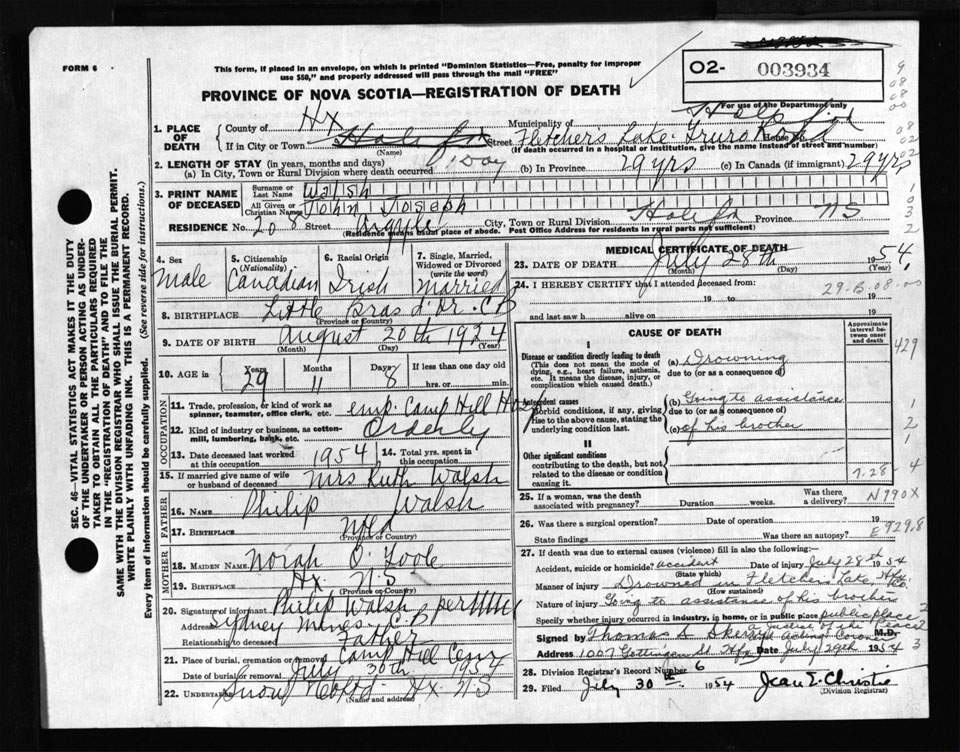 FORM 6
This form, if placed in an envelope, on which is printed "Dominion Statistics—Free, penalty for improper
use $50," and properly addressed will pass through the mail "FREE"
O2- 003934
PROVINCE OF NOVA SCOTIA—REGISTRATION OF DEATH
For use of the Department only
1. PLACE OF DEATH
County of Hx
Municipality of Halifax
If in City or Town Halifax (Name)
Street Fletchers Lake Truro Road House No.
(If death occurred in a hospital or institution, give the name instead of street and number)
2. LENGTH OF STAY (in years, months and days)
(a) In City, Town or Rural Division where death occurred 1 Day (b) In Province 29 yrs (c) In Canada (if immigrant) 29 yrs
3. PRINT NAME OF DECEASED
Surname or Last Name Walsh
All Given or Christian Names John Joseph
RESIDENCE No. 208 Street Argyle City, Town or Rural Division Halifax Province NS
(Residence means usual place of abode. Post Office Address for residents in rural parts not sufficient)
4. Sex Male
5. Citizenship (Nationality) Canadian
6. Racial Origin Irish
7. Single, Married, Widowed or Divorced (write the word) Married
8. BIRTHPLACE Little Bras d'Or. C B
(Province or Country)
9. DATE OF BIRTH August 20th 1924
(Month) (Day) (Year)
10. AGE in Years 29 Months 11 Days 8 If less than one day old hrs. or min.
OCCUPATION
11. Trade, profession, or kind of work as spinner, teamster, office clerk, etc. emp. Camp Hill Hosp
12. Kind of industry or business, as cotton-mill, lumbering, bank, etc. Orderly
13. Date deceased last worked at this occupation 1954
14. Total yrs. spent in this occupation
15. If married give name of wife or husband of deceased Mrs Ruth Walsh
FATHER
16. NAME Philip Walsh
17. BIRTHPLACE Nfld
(Province or Country)
MOTHER
18. MAIDEN NAME Norah O'Toole
19. BIRTHPLACE Hx. N S
(Province or Country)
20. Signature of informant Philip Walsh per
Address Sydney Mines C.B
Relationship to deceased Father
21. Place of burial, cremation or removal Camp Hill Cem
Date of burial or removal July 30th 1954
22. UNDERTAKER Snow Hx. N S
(Name and address)
MEDICAL CERTIFICATE OF DEATH
23. DATE OF DEATH July 28th 1954
(Month) (Day) (Year)
24. I HEREBY CERTIFY that I attended deceased from:
29-B-08-00
19 to 19
and last saw h alive on 19
CAUSE OF DEATH
Approximate interval between onset and death
I
Disease or condition directly leading to death
(This does not mean the mode of dying, e.g., heart failure, asthenia, etc. It means the disease, injury, or complication which caused death.)
(a) Drowning
due to (or as a consequence of)
Antecedent causes
Morbid conditions, if any, giving rise to the above cause, stating the underlying condition last.
(b) Going to assistance
due to (or as a consequence of)
(c) of his brother
II
Other significant conditions
contributing to the death, but not related to the disease or condition causing it.
7-28-4
25. If a woman, was the death associated with pregnancy? Duration weeks. Was there a delivery? N990X
26. Was there a surgical operation? Date of operation 19
State findings Was there an autopsy? E929.8
27. If death was due to external causes (violence) fill in also the following:
Accident, suicide or homicide? accident Date of injury July 28th 1954
(State which)
Manner of injury Drowned in Fletchers Lake, Hfx
(How sustained)
Nature of injury Going to assistance of his brother
Specify whether injury occurred in industry, in home, or in public place public place
a Justice of the Peace
Signed by Thomas A. acting Coroner M.D.
Address 1007 Gottingen St Hfx Date July 29th 1954
28. Division Registrar's Record Number 6
29. Filed July 30th 1954 Jean E. Christie
(Division Registrar)
SEC. 46—VITAL STATISTICS ACT MAKES IT THE DUTY
OF THE UNDERTAKER OR PERSON ACTING AS UNDER-
TAKER TO OBTAIN ALL THE PARTICULARS REQUIRED
IN THE "REGISTRATION OF DEATH" AND TO FILE THE
SAME WITH THE DIVISION REGISTRAR WHO SHALL ISSUE THE BURIAL PERMIT.
WRITE PLAINLY WITH UNFADING INK. THIS IS A PERMANENT RECORD.
Every item of information should be carefully supplied. (See reverse side for instructions.)
9
08
08
00
08
02
02
1
0
3
2
429
1
2
1
2
2
3